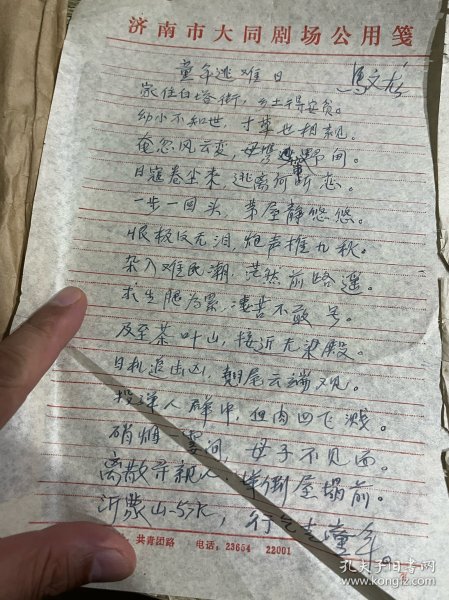 济南市大同剧场公用笺
童年逃难日 马文龙
家住白塔街，乡土得安负。
幼小不知世，寸草也相亲。
奄忽风云变，母 野间。
日寇卷尘来，逃离何所恋。
一步一回头，茅屋静悠悠。
恨极反无泪，炮声摧九秋。
杂入难民潮，茫然前路遥。
求生腿为累，凄苦不敢号。
及至茶叶山，接近无梁殿。
日机追击凶，翘尾云端见。
投弹人群中，血肉四飞溅。
硝烟 雾间，母子不见面。
离散寻亲人，半倒屋塌前。
沂蒙山与水，行乞去童年。
共青团路 电话：23654 22001
孔夫子旧书网